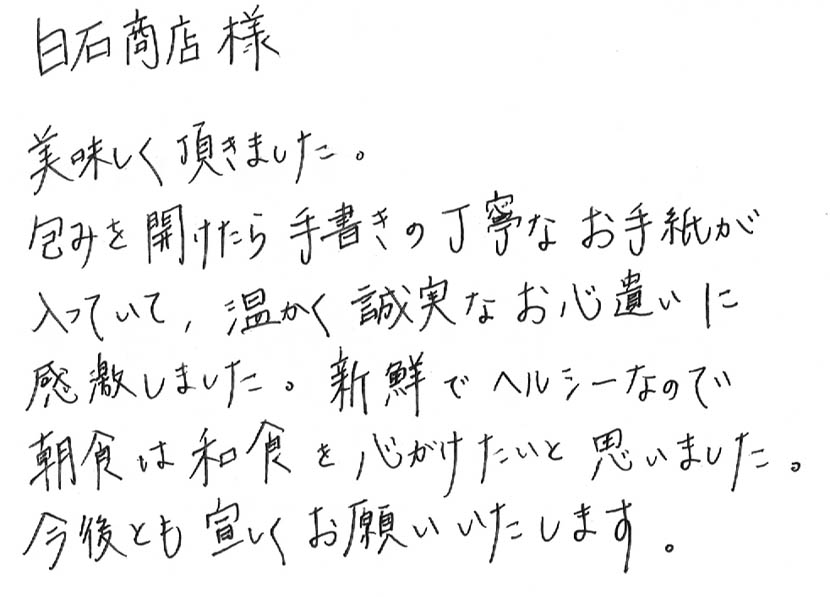 白石商店様
美味しく頂きました。
包みを開けたら手書きの丁寧なお手紙が
入っていて、温かく誠実なお心遣いに
感激しました。新鮮でヘルシーなので
朝食は和食を心がけたいと思いました。
今後とも宜しくお願いいたします。